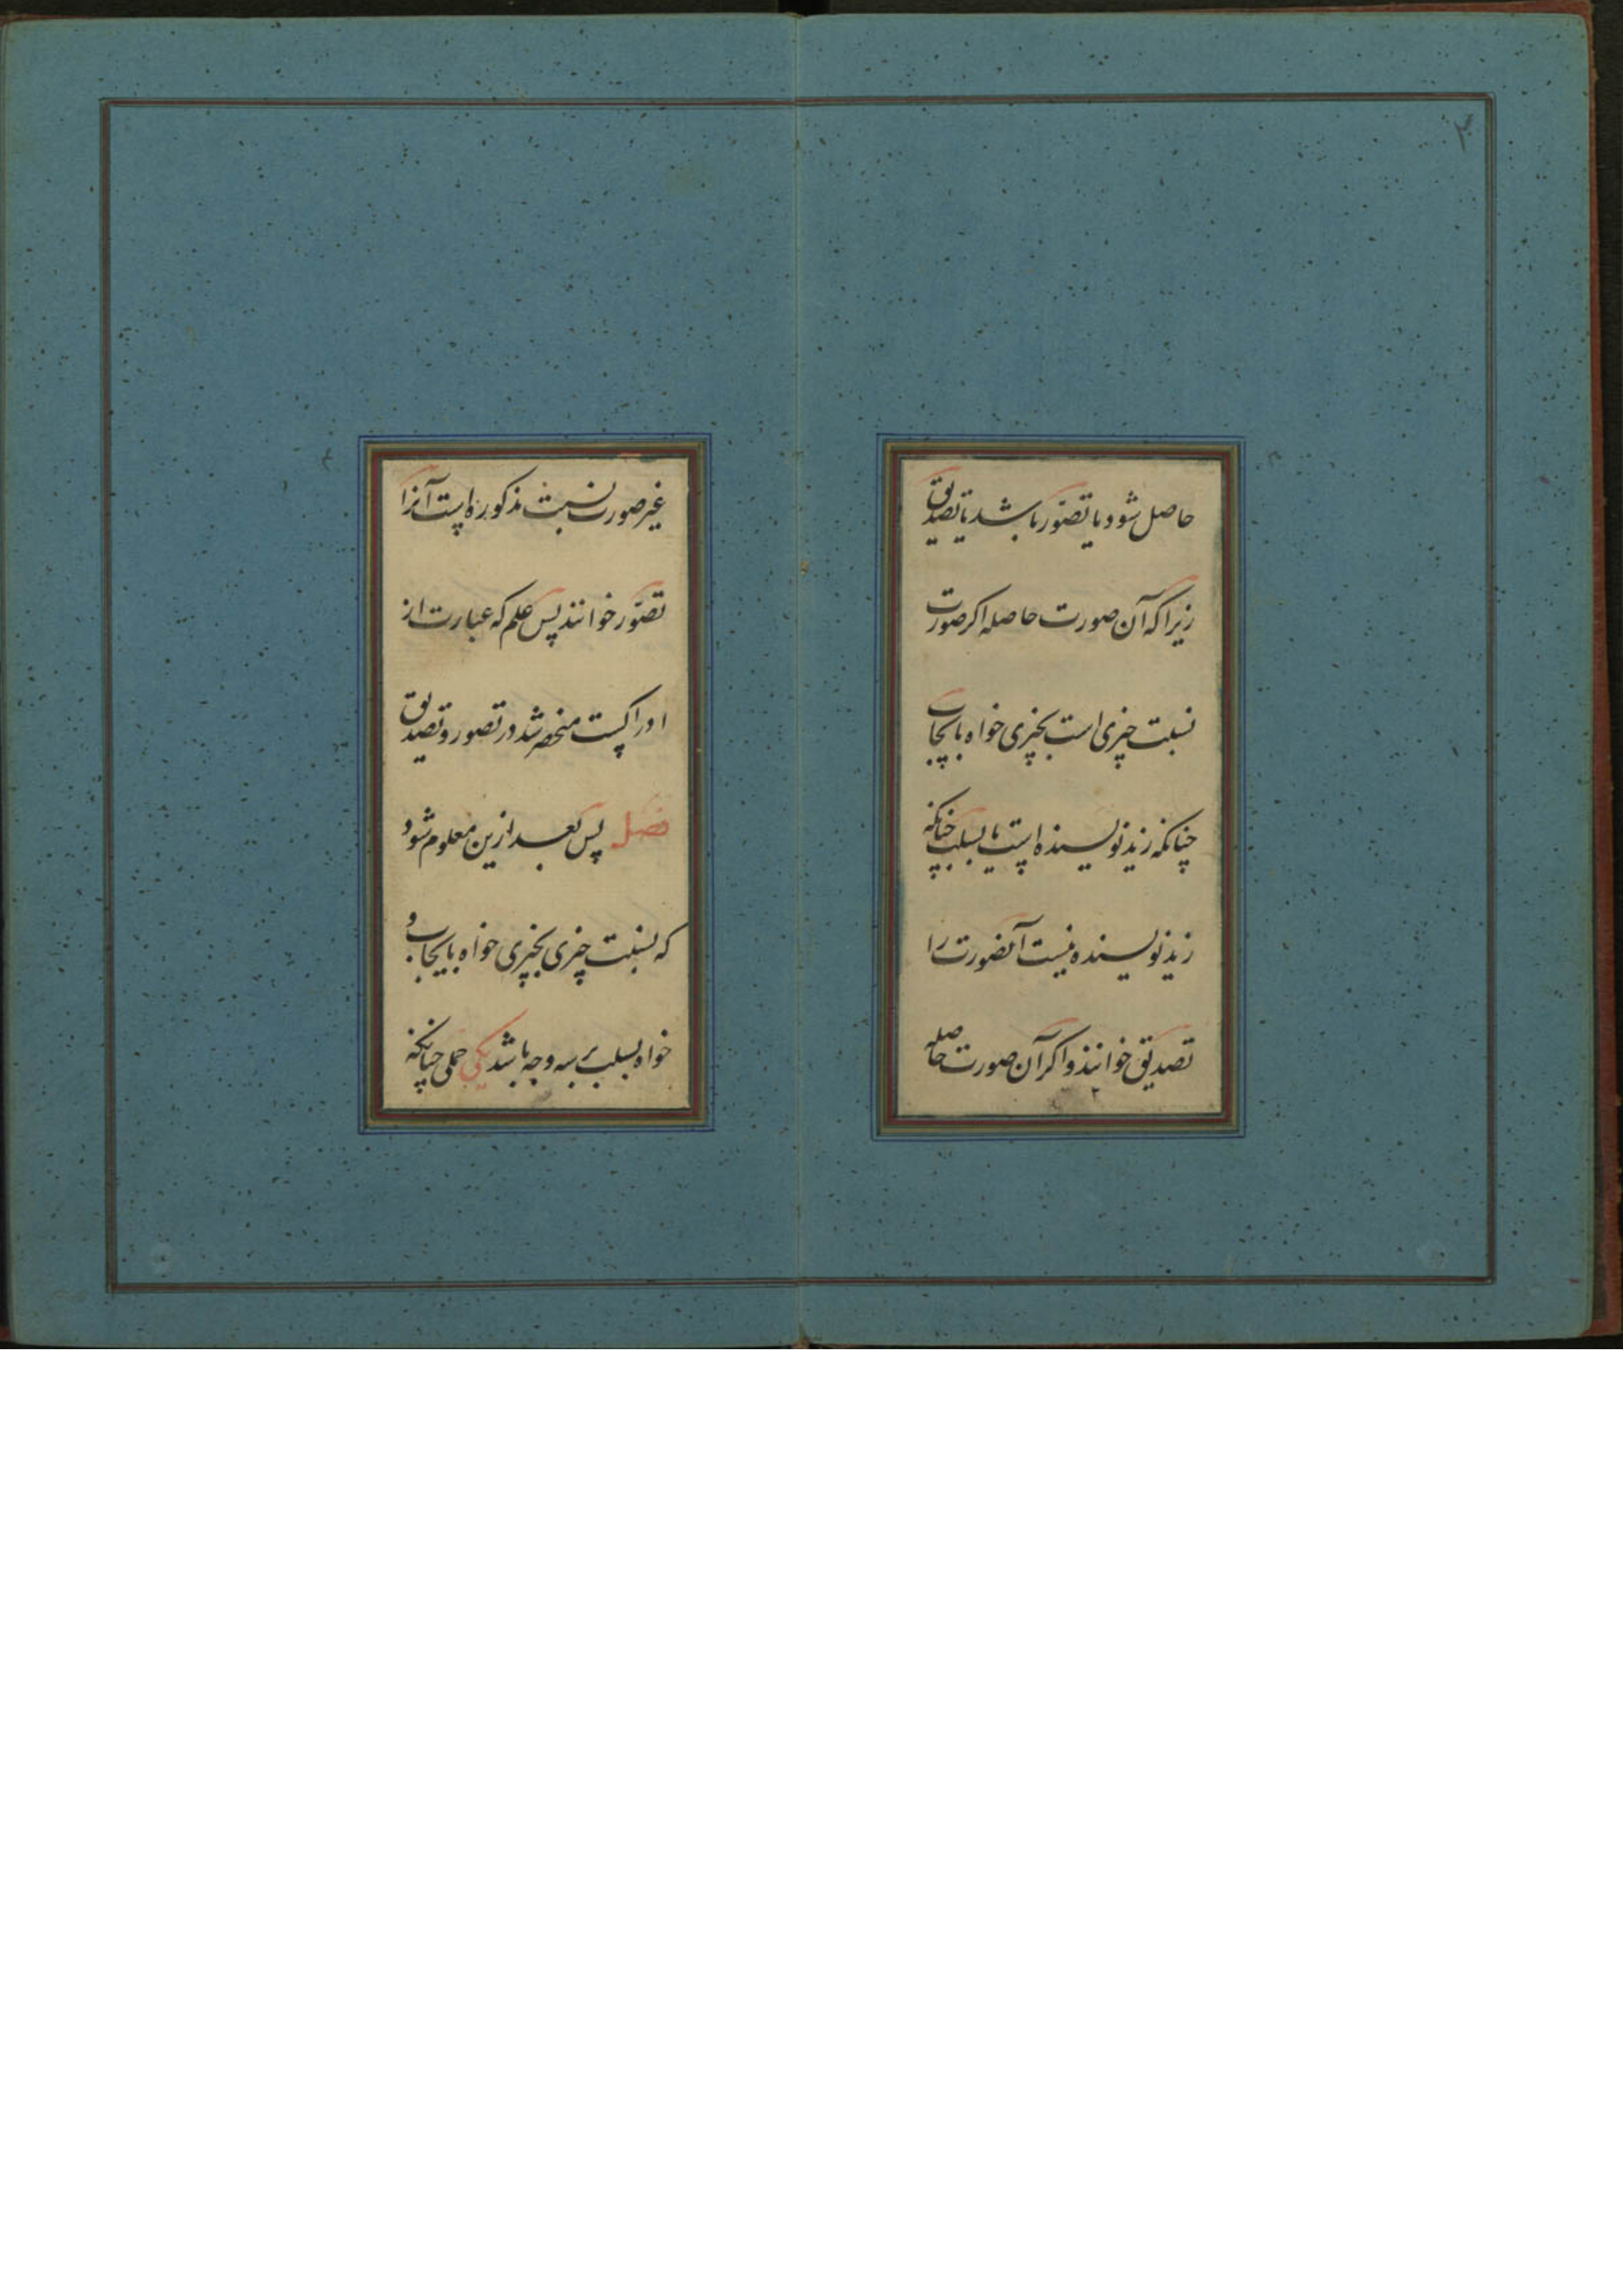 ۲
حاصل شود یا تصوّر باشد یا تصدیق
زیرا که آن صورت حاصله اکر صورت
نسبت چیزی است بچیزی خواه بایجاب
چنانکه زید نویسنده است یا بسلب چنانکه
زید نویسنده نیست آنصورت را
تصدیق خوانند و اکر آن صورت حاصله
۲
غیر صورت نسبت مذکوره است آنرا
تصوّر خوانند پس علم که عبارت از
ادراکست منحصر شد در تصور و تصدیق
فصل پس بعد ازین معلوم شود
که نسبت چیزی بچیزی خواه بایجاب و
خواه بسلب بر سه وجه باشد یکی حملی چنانکه